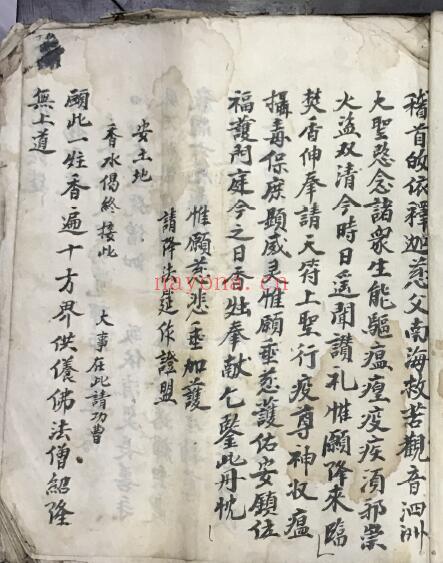 稽首皈依釋迦慈父南海救苦觀音泗洲
大聖愍念諸衆生能驅瘟㾮疫疾須邪祟
火盜双清今時日遥聞讚礼惟願降來臨
焚香伸奉請天符上聖行疫尊神收瘟
攝毒保庶顯威灵惟願垂慈護佑安鎮位
福護门庭今之日香炷奉献乞鑒此丹忱
惟願慈悲垂加護
請降法筵作證盟
安土地
香水偈終接此
大事在此請功曹
願此一炷香遍十方界供養佛法僧紹隆
無上道
nayona.cn